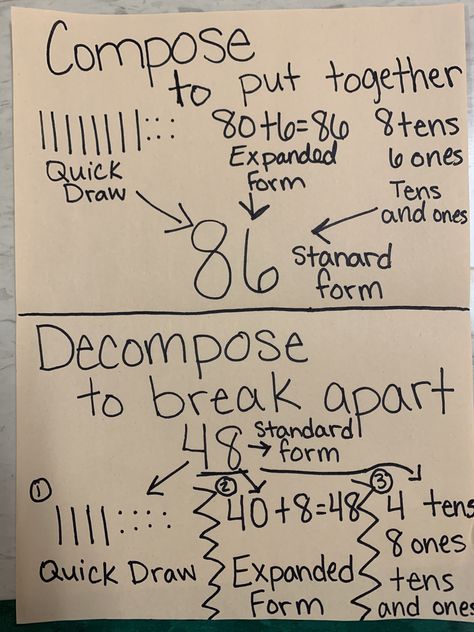 Compose
to put together
80+6=86
8 tens
6 ones
Quick
Draw
Expanded
form
Tens
and ones
86
Stanard
form
Decompose
to break apart
48 → Standard
form
①
②
③
40+8=48
4 tens
8 ones
Quick Draw
Expanded
Form
tens
and ones